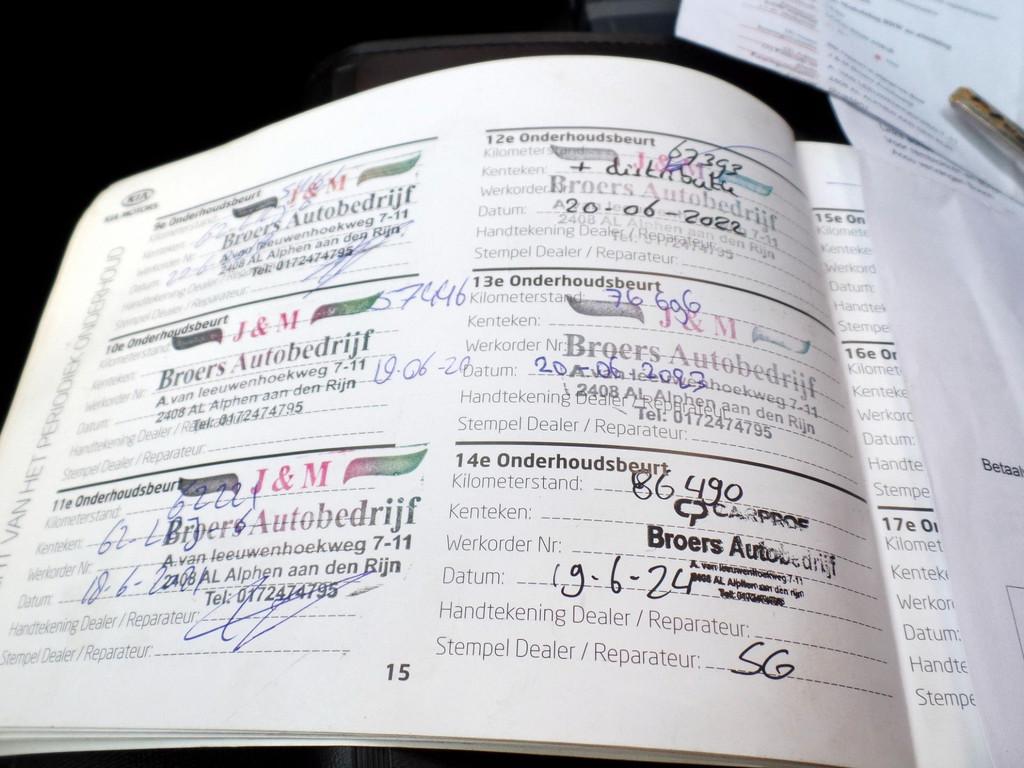 KIA
KIA MOTORS
VAN HET PERIODIEK ONDERHOUD
9e Onderhoudsbeurt
J & M
Kilometerstand:
Broers Autobedrijf
Kenteken:
A.van leeuwenhoekweg 7-11
Werkorder Nr:
2408 AL Alphen aan den Rijn
Datum:
Tel: 0172474795
Handtekening Dealer / Reparateur:
Stempel Dealer / Reparateur:
10e Onderhoudsbeurt
J & M
Kilometerstand:
Broers Autobedrijf
Kenteken:
A.van leeuwenhoekweg 7-11
Werkorder Nr:
2408 AL Alphen aan den Rijn
Datum: 19-06-20
Tel: 0172474795
Handtekening Dealer / Reparateur:
Stempel Dealer / Reparateur:
11e Onderhoudsbeurt
J & M
Kilometerstand:
Broers Autobedrijf
Kenteken:
A.van leeuwenhoekweg 7-11
Werkorder Nr:
2408 AL Alphen aan den Rijn
Datum: 18-6-2021
Tel: 0172474795
Handtekening Dealer / Reparateur:
Stempel Dealer / Reparateur:
15
12e Onderhoudsbeurt
Kilometerstand: 67393
J & M
Kenteken: + distributie
Werkorder
Broers Autobedrijf
Datum: 20-06-2022
7-11
2408 AL Alphen aan den Rijn
Handtekening Dealer / Reparateur:
Tel: 0172474795
Stempel Dealer / Reparateur:
13e Onderhoudsbeurt
Kilometerstand: 76 696
J & M
Kenteken:
Werkorder Nr:
Broers Autobedrijf
Datum: 20-06-2023
A.van leeuwenhoekweg 7-11
2408 AL Alphen aan den Rijn
Handtekening Dealer / Reparateur:
Tel: 0172474795
Stempel Dealer / Reparateur:
14e Onderhoudsbeurt
Kilometerstand: 86 490
CARPROF
Kenteken:
Broers Autobedrijf
Werkorder Nr:
A. van leeuwenhoekweg 7-11
2408 AL Alphen aan den rijn
Datum: 19-6-24
Tel: 0172474795
Handtekening Dealer / Reparateur:
Stempel Dealer / Reparateur: SG
15e On
Kilomet
Kenteke
Werkord
Datum:
Handtek
Stempe
16e Or
Kilomet
Kenteke
Werkorc
Datum:
Handte
Stempe
17e O
Kilomet
Kenteke
Werkor
Datum:
Handte
Stempe
Betaal